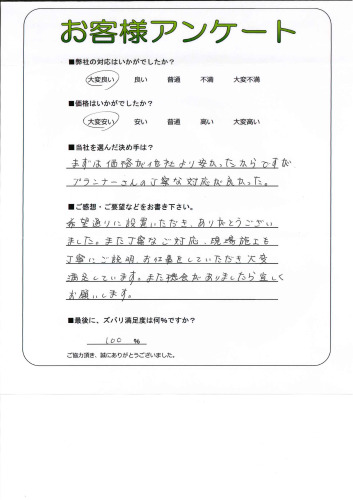 お客様アンケート
■弊社の対応はいかがでしたか？
大変良い 良い 普通 不満 大変不満
■価格はいかがでしたか？
大変安い 安い 普通 高い 大変高い
■当社を選んだ決め手は？
まずは価格が他社より安かったからですが
プランナーさんの丁寧な対応が良かった。
■ご感想・ご要望などをお書き下さい。
希望通りに設置いただき、ありがとうござい
ました。また丁寧なご対応、現場施工も
丁寧にご説明、お仕事をしていただき大変
満足しています。また機会がありましたら宜しく
お願いします。
■最後に、ズバリ満足度は何%ですか？
100 %
ご協力頂き、誠にありがとうございました。